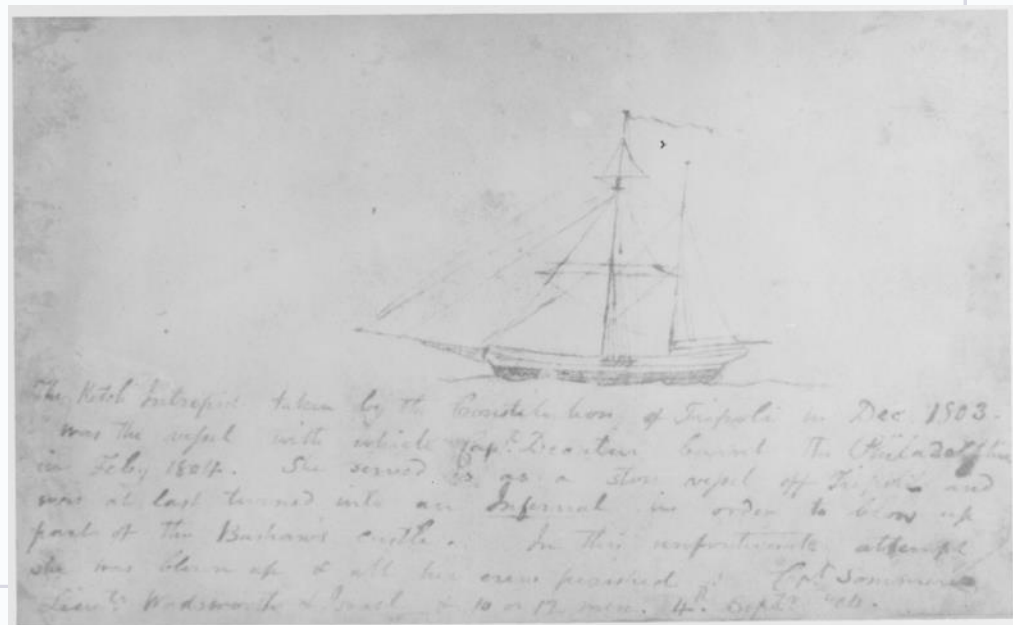 The Ketch Intrepid taken by the Constitution of Tripoli in Dec 1803.
was the vessel with which Capt. Decatur burnt the Philadelphia
in Feby 1804. She served us as a store vessel off Tripoli and
was at last turned into an Infernal in order to blow up
part of the Bashaws castle. In this unfortunate attempt
she was blown up & all her crew perished : Capt Sommers
Lieuts. Wadsworth & Israel & 10 or 12 men. 4th Sept.